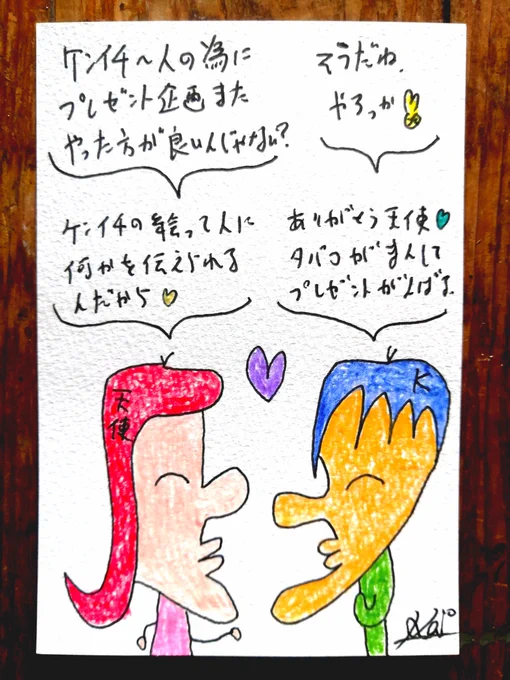 ケンイチ〜人の為に
プレゼント企画また
やった方が良いんじゃない?
そうだね、
やろっか
ケンイチの絵って人に
何かを伝えられる
んだから
ありがとう天使
タバコがまんして
プレゼントがんばる。
天使
K